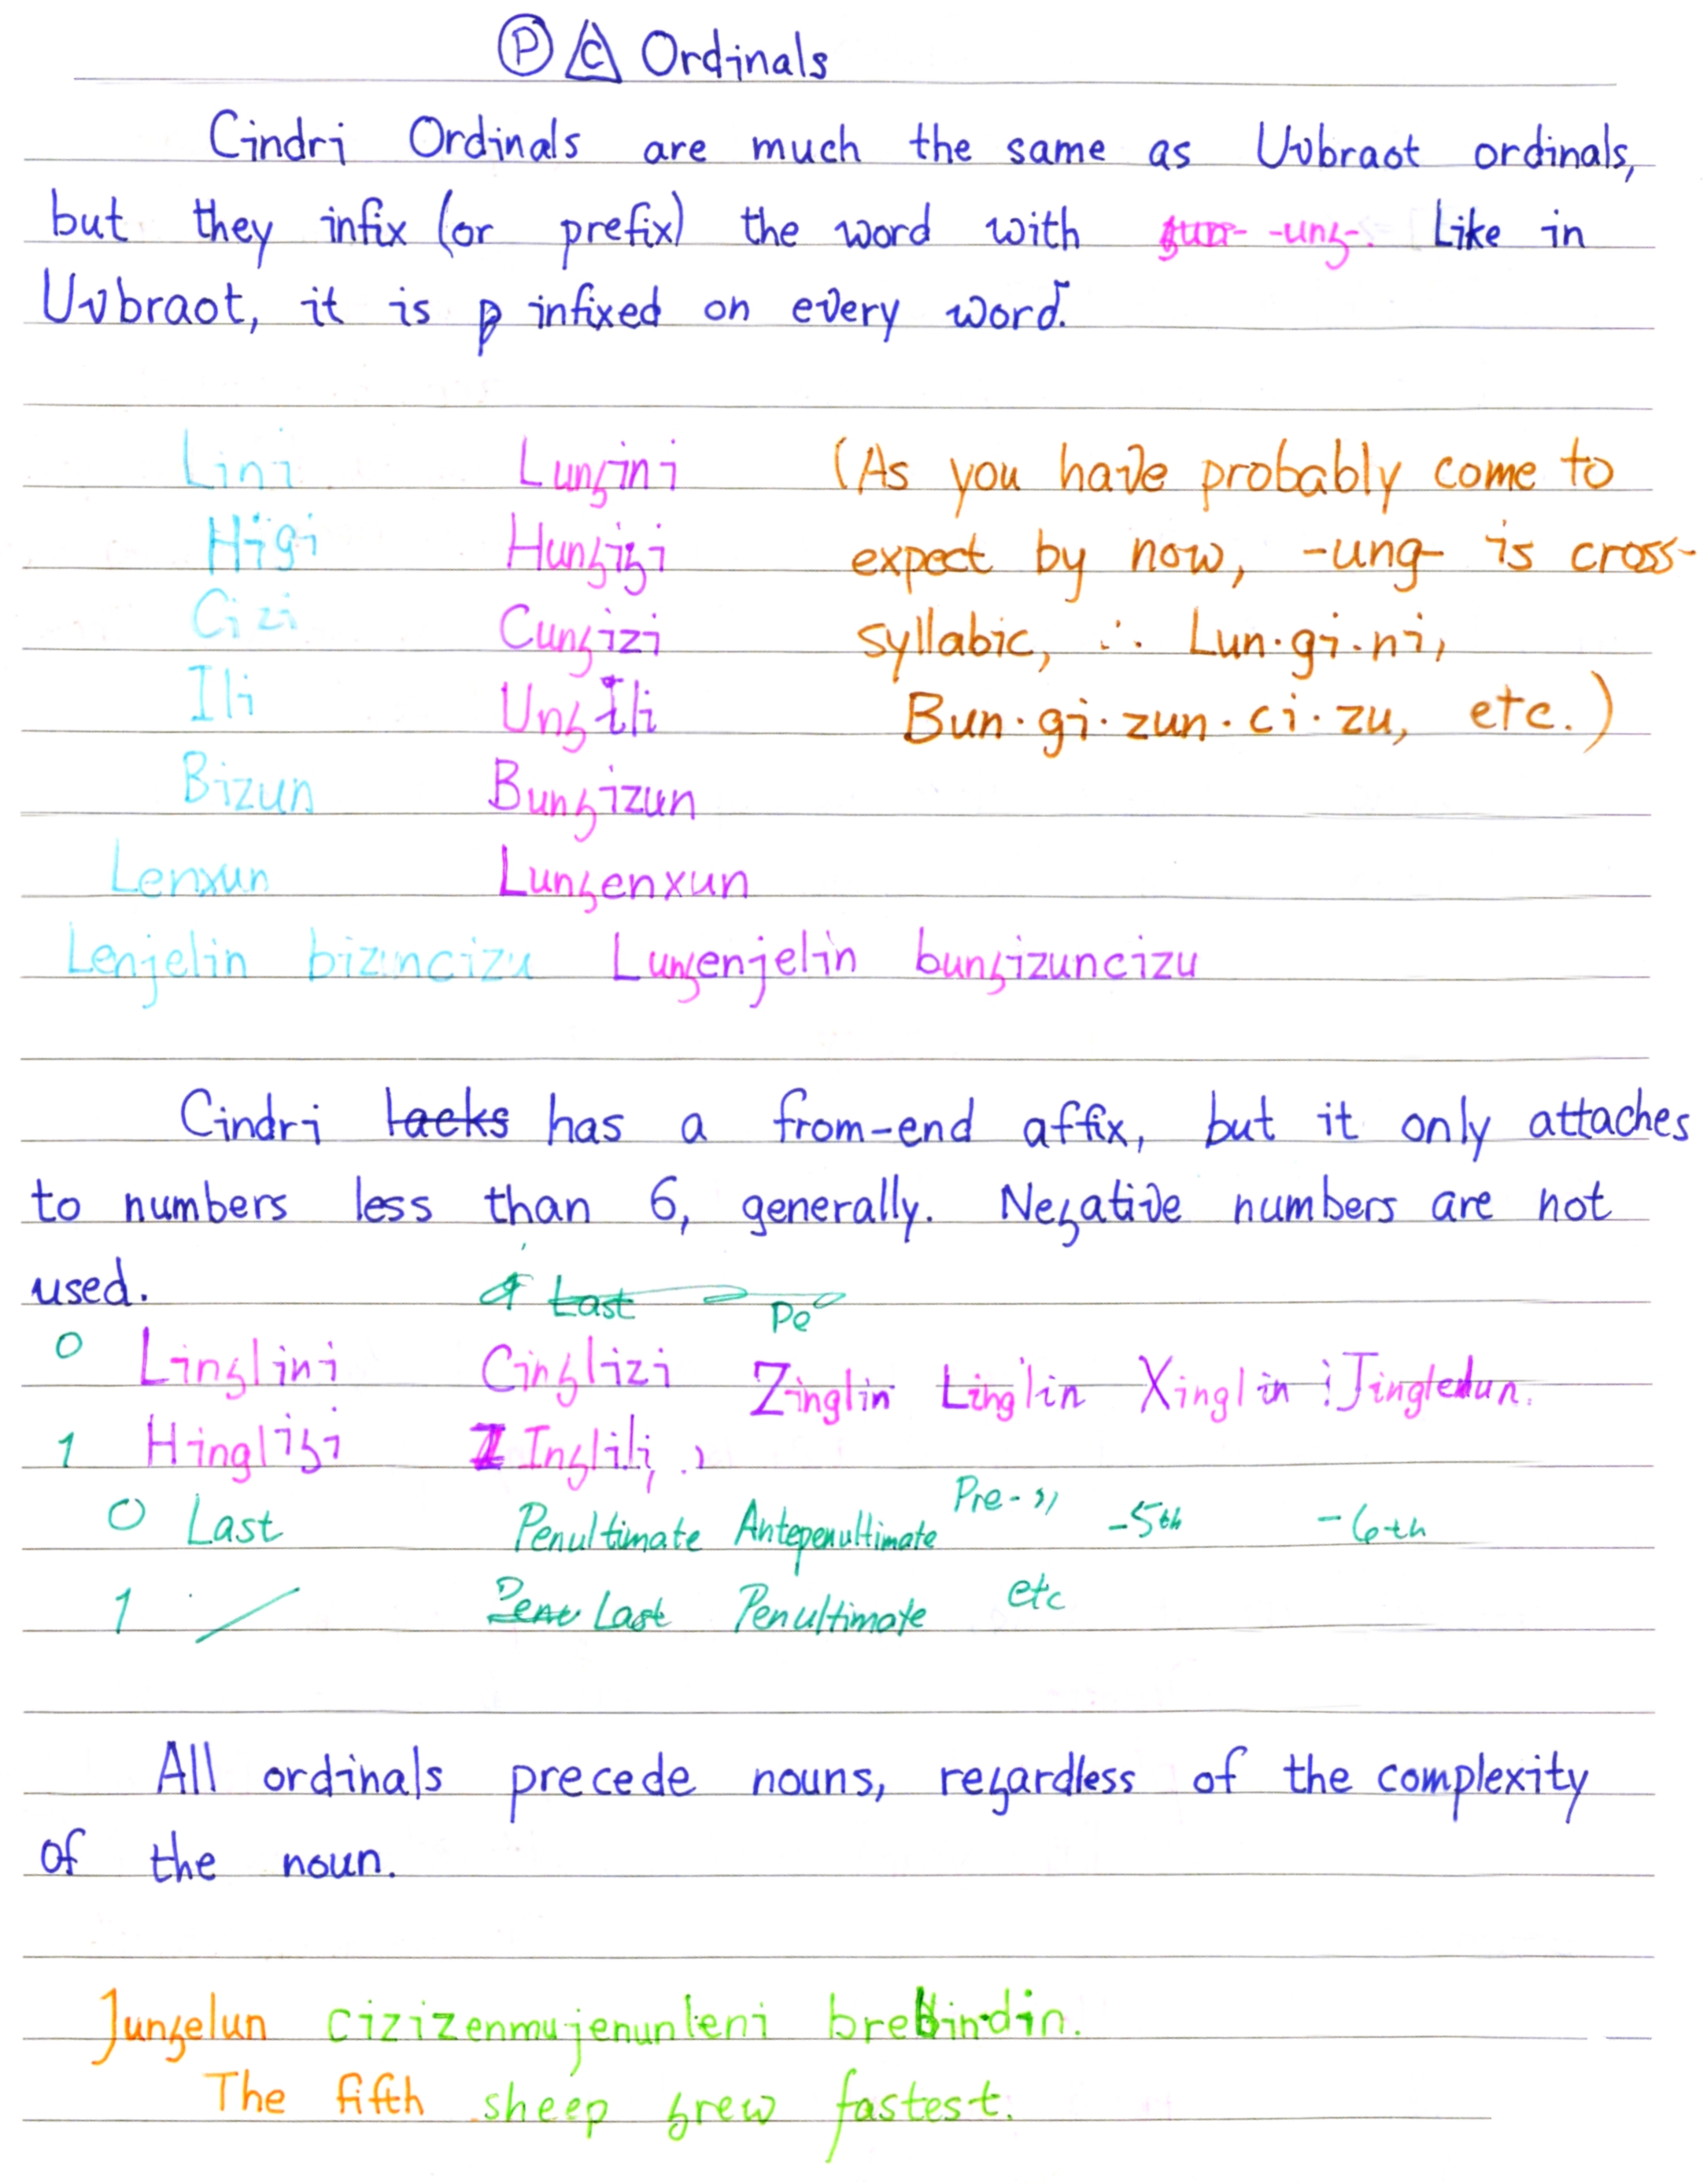 P C Ordinals
Cindri Ordinals are much the same as Uvbraot ordinals,
but they infix (or prefix) the word with -ung-. Like in
Uvbraot, it is infixed on every word.
Lini Lungini (As you have probably come to
Higi Hungigi expect by now, -ung- is cross-
Cizi Cungizi syllabic, ∴ Lun·gi·ni,
Ili Ungili Bun·gi·zun·ci·zu, etc.)
Bizun Bungizun
Lenxun Lungenxun
Lenjelin bizuncizu Lungenjelin bungizuncizu
Cindri lacks has a from-end affix, but it only attaches
to numbers less than 6, generally. Negative numbers are not
used. Last Pe
0 Linglini Cinglizi Zinglin Linglin Xinglin Jingledun.
1 Hingligi Inglili,
0 Last Penultimate Antepenultimate Pre-〃 -5th -6th
1 Last Penultimate etc
All ordinals precede nouns, regardless of the complexity
of the noun.
Jungelun cizizenmujenunleni
The fifth sheep grew fastest.